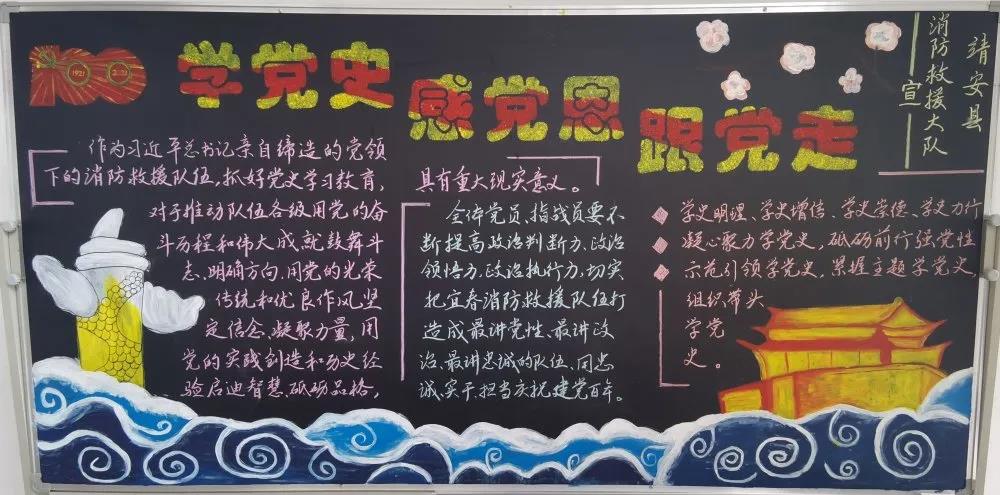 100
1921
2021
学党史
感党恩
跟党走
靖安县
消防救援大队
宣
作为习近平总书记亲自缔造的党领
下的消防救援队伍，抓好党史学习教育，
对于推动队伍各级用党的奋
斗历程和伟大成就鼓舞斗
志、明确方向，用党的光荣
传统和优良作风坚
定信念、凝聚力量，用
党的实践创造和历史经
验启迪智慧、砥砺品格，
具有重大现实意义。
全体党员、指战员要不
断提高政治判断力、政治
领悟力、政治执行力，切实
把宜春消防救援队伍打
造成最讲党性、最讲政
治、最讲忠诚的队伍，用忠
诚、实干、担当庆祝建党百年。
学史明理、学史增信、学史崇德、学史力行
凝心聚力学党史，砥砺前行强党性
示范引领学党史，紧握主题学党史，
组织带头
学党
史。